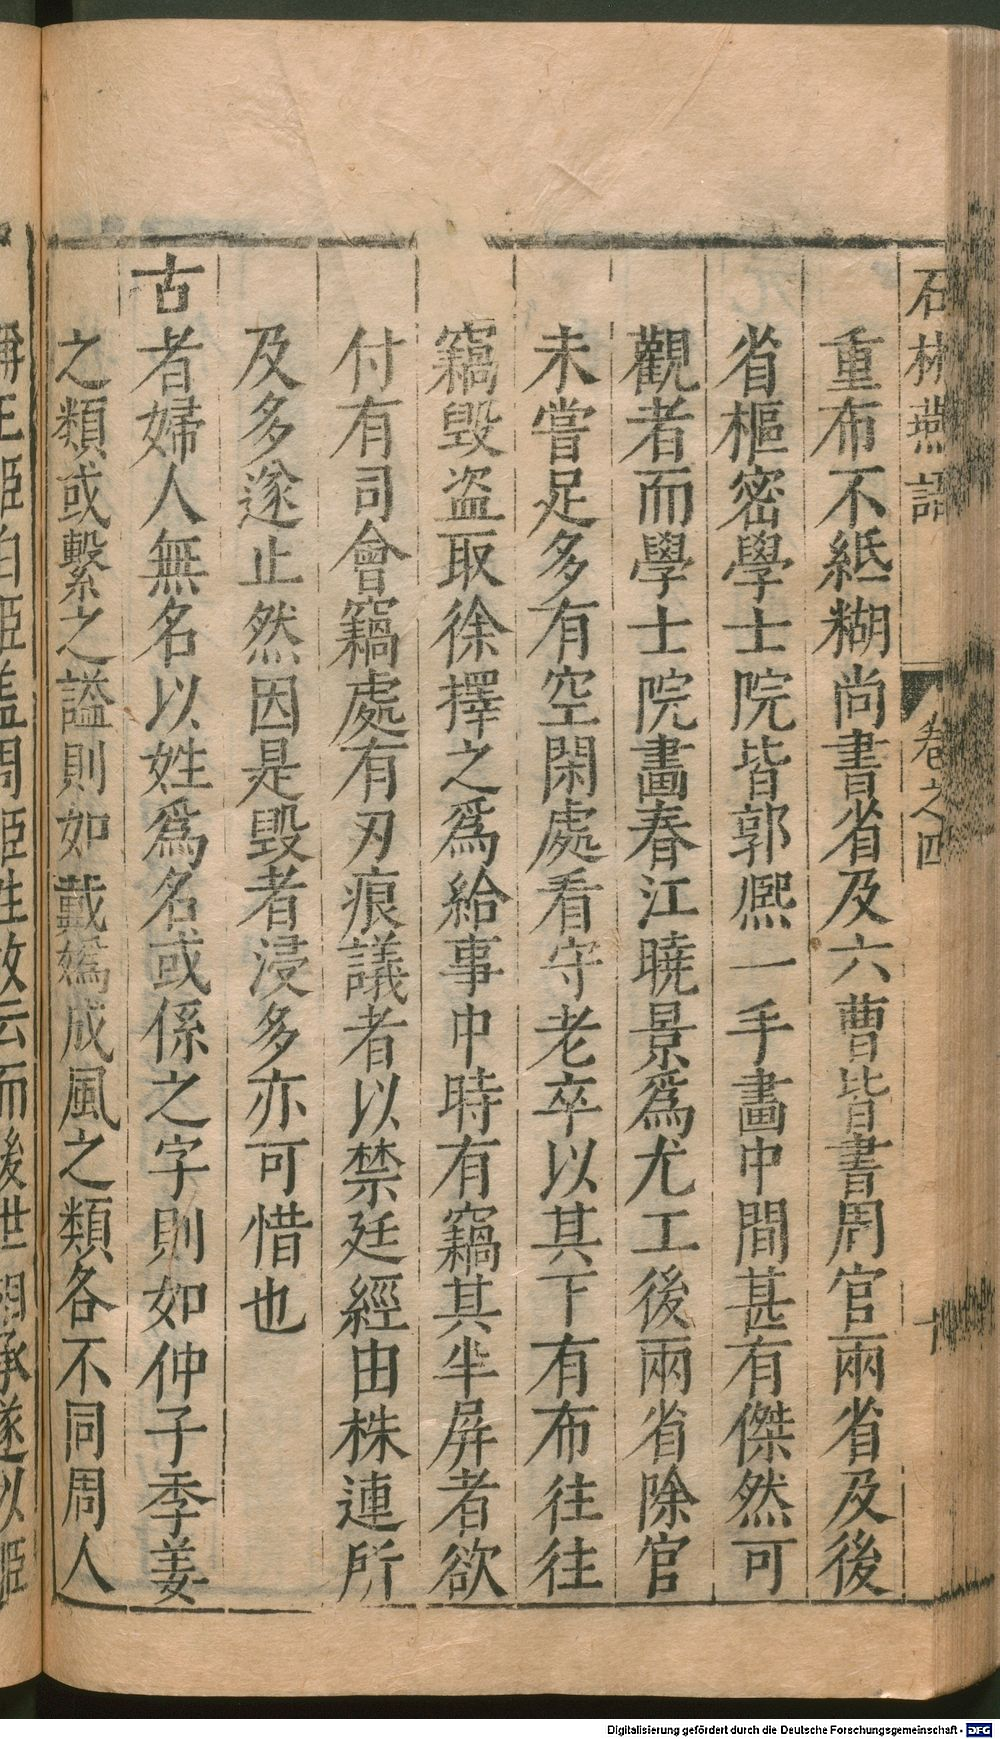 石林燕語
卷之四
十
重布不紙糊尚書省及六曹皆書周官兩省及後
省樞密學士院皆郭熙一手畫中間甚有傑然可
觀者而學士院畫春江曉景爲尤工後兩省除官
未嘗足多有空閑處看守老卒以其下有布往往
竊毀盜取徐擇之爲給事中時有竊其半屏者欲
付有司會竊處有刃痕議者以禁廷經由株連所
及多遂止然因是毀者浸多亦可惜也
古者婦人無名以姓爲名或係之字則如仲子季姜
之類或繫之謚則如戴嬀成風之類各不同周人
稱王姬伯姬盖周姬姓故云而後世相承遂以姬
Digitalisierung gefördert durch die Deutsche Forschungsgemeinschaft - DFG